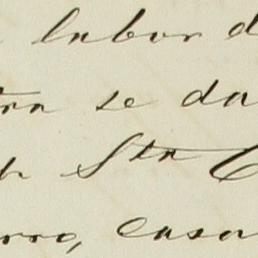 labor d
tra se da
Sta C
rro, casa